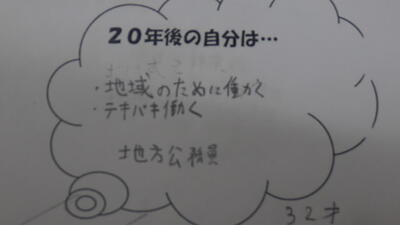 20年後の自分は…
・地域のために働く
・テキパキ働く
地方公務員
32才